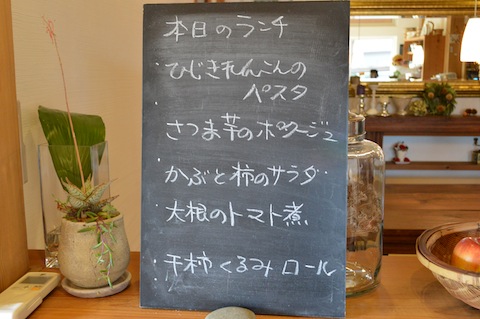 本日のランチ
ひじきれんこんの
パスタ
さつま芋のポタージュ
かぶと柿のサラダ
大根のトマト煮
干柿くるみロール